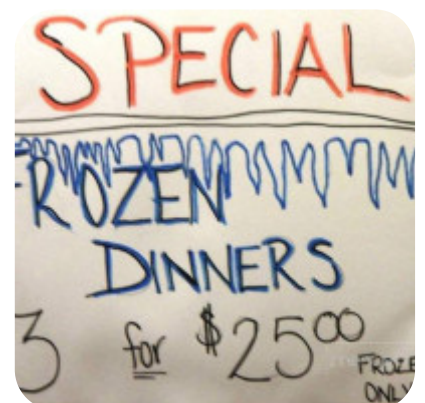 SPECIAL
FROZEN
DINNERS
3 for $2500
FROZE
ONLY